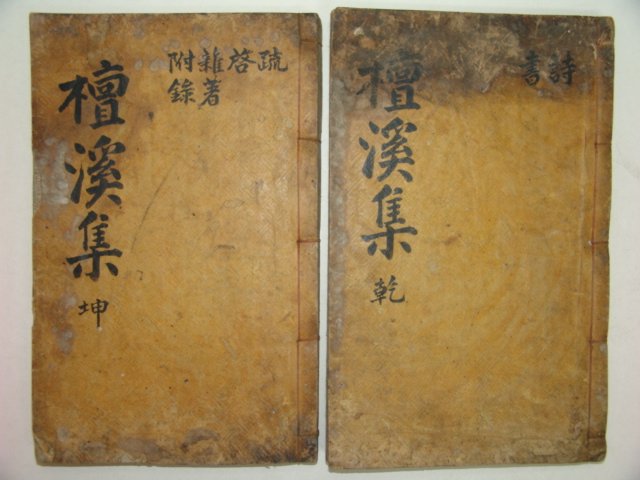 檀溪集
坤
疏
啓
雜著
附錄
檀溪集
乾
詩
書